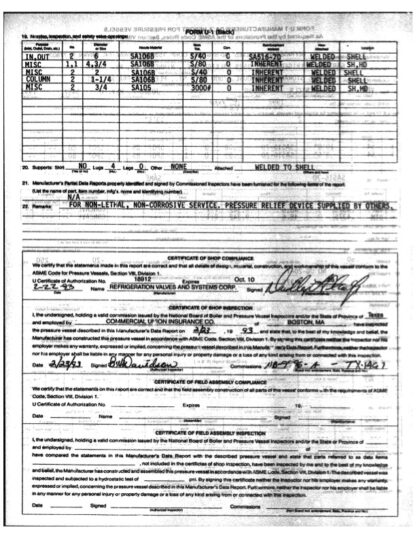 FORM U-1 (Back)
19. Nozzles, inspection, and safety valve openings:
Purpose (Inlet, Outlet, Drain, etc.) No. Diameter or Size Nozzle Material Nom. Thk. Corr. Reinforcement Material How Attached Location
IN,OUT 2 6 SA106B S/40 0 SA516-70 WELDED SHELL
MISC 1,1 4,3/4 SA106B S/80 0 INHERENT WELDED SH,HD
MISC 2 2 SA106B S/80 0 INHERENT WELDED SHELL
COLUMN 2 1-1/4 SA106B S/80 0 INHERENT WELDED SHELL
MISC 2 3/4 SA105 3000# 0 INHERENT WELDED SH,HD
20. Supports: Skirt NO Lugs 4 Legs 0 Other NONE Attached WELDED TO SHELL
21. Manufacturer's Partial Data Reports properly identified and signed by Commissioned Inspectors have been furnished for the following items of the report:
(List the name of part, item number, mfg's. name and identifying number)
N/A
22. Remarks: FOR NON-LETHAL, NON-CORROSIVE SERVICE. PRESSURE RELIEF DEVICE SUPPLIED BY OTHERS.
CERTIFICATE OF SHOP COMPLIANCE
We certify that the statements made in this report are correct and that all details of design, material, construction, and workmanship of this vessel conform to the
ASME Code for Pressure Vessels, Section VIII, Division 1.
U Certificate of Authorization No. 18912 Expires Oct. 10
2-22-93 Name REFRIGERATION VALVES AND SYSTEMS CORP. Signed
Date
CERTIFICATE OF SHOP INSPECTION
I, the undersigned, holding a valid commission issued by the National Board of Boiler and Pressure Vessel Inspectors and/or the State or Province of Texas
and employed by COMMERCIAL UNION INSURANCE CO. of BOSTON, MA have inspected
the pressure vessel described in this Manufacturer's Data Report on 2/23, 19 93, and state that, to the best of my knowledge and belief, the
Manufacturer has constructed this pressure vessel in accordance with ASME Code, Section VIII, Division 1. By signing this certificate neither the Inspector nor his
employer makes any warranty, expressed or implied, concerning the pressure vessel described in this Manufacturer's Data Report. Furthermore, neither the Inspector
nor his employer shall be liable in any manner for any personal injury or property damage or a loss of any kind arising from or connected with this inspection.
Date 2/23/93 Signed Commissions
CERTIFICATE OF FIELD ASSEMBLY COMPLIANCE
We certify that the statements on this report are correct and that the field assembly construction of all parts of this vessel conforms with the requirements of ASME
Code, Section VIII, Division 1.
U Certificate of Authorization No. Expires 19
Date Name Signed
CERTIFICATE OF FIELD ASSEMBLY INSPECTION
I, the undersigned, holding a valid commission issued by the National Board of Boiler and Pressure Vessel Inspectors and/or the State or Province of
and employed by of
have compared the statements in this Manufacturer's Data Report with the described pressure vessel and state that parts referred to as data items
, not included in the certificate of shop inspection, have been inspected by me and to the best of my knowledge
and belief, the Manufacturer has constructed and assembled this pressure vessel in accordance with ASME Code, Section VIII, Division 1. The described vessel was
inspected and subjected to a hydrostatic test of psi. By signing this certificate neither the Inspector nor his employer makes any warranty,
expressed or implied, concerning the pressure vessel described in this Manufacturer's Data Report. Furthermore, neither the Inspector nor his employer shall be liable
in any manner for any personal injury or property damage or a loss of any kind arising from or connected with this inspection.
Date Signed Commissions